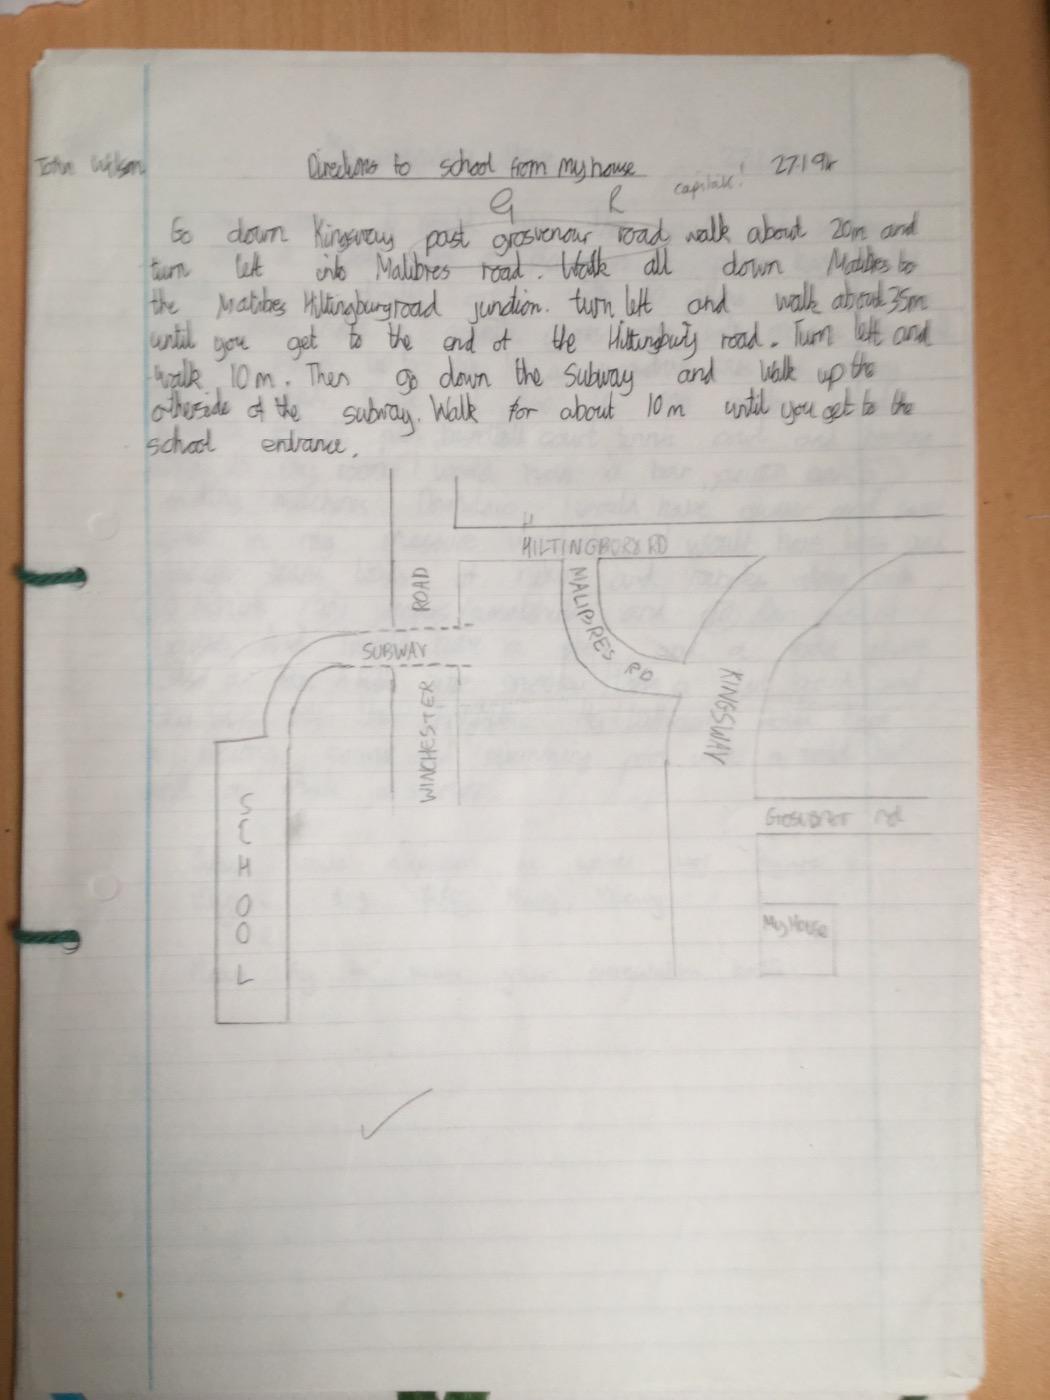 John Wilson
Directions to school from my house
capitals!
G R
Go down Kingsway past grosvenour road walk about 20m and
turn left into Malibres road. Walk all down Malibres to
the Malibres Hiltingbury road junction. turn left and walk about 35m
until you get to the end of the Hiltingbury road. Turn left and
walk 10m. Then go down the subway and walk up the
otherside of the subway. Walk for about 10m until you get to the
school entrance.
HILTINGBORY RD
MALIBRES RD
ROAD
SUBWAY
WINCHESTER
KINGSWAY
rd
My House
SCHOOL